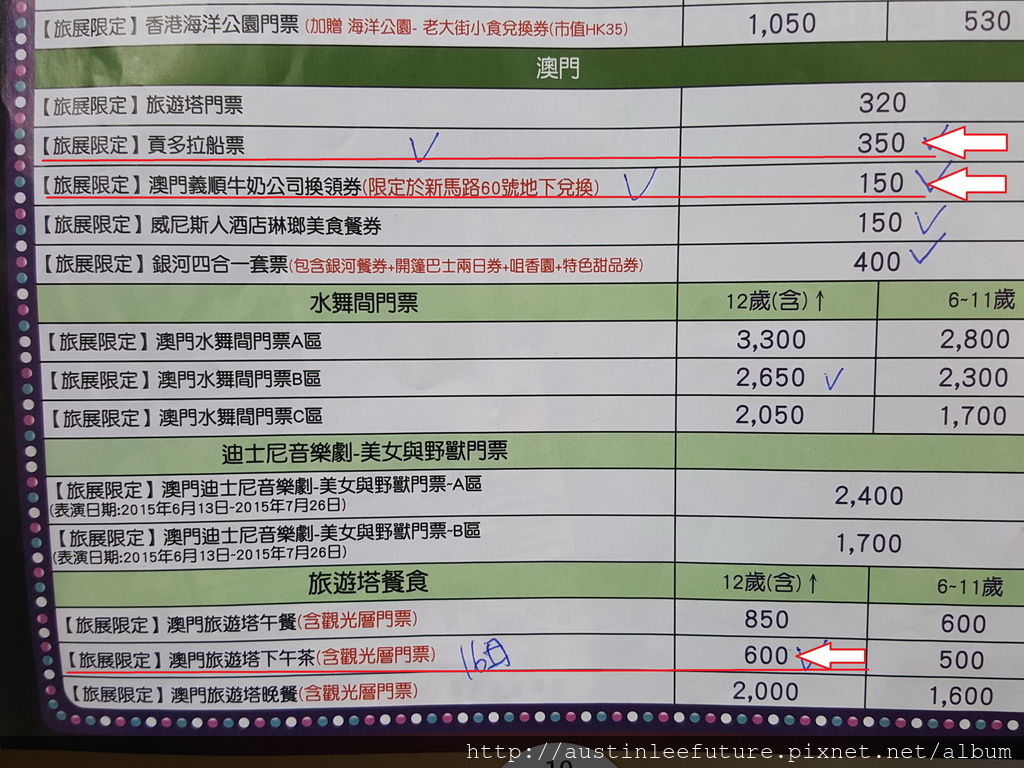 【旅展限定】香港海洋公園門票 (加贈 海洋公園- 老大街小食兌換券(市值HK35) 1,050 530
澳門
【旅展限定】旅遊塔門票 320
【旅展限定】貢多拉船票 350
【旅展限定】澳門義順牛奶公司換領券(限定於新馬路60號地下兌換) 150
【旅展限定】威尼斯人酒店琳瑯美食餐券 150
【旅展限定】銀河四合一套票(包含銀河餐券+開篷巴士兩日券+咀香園+特色甜品券) 400
水舞間門票 12歲(含)↑ 6~11歲
【旅展限定】澳門水舞間門票A區 3,300 2,800
【旅展限定】澳門水舞間門票B區 2,650 2,300
【旅展限定】澳門水舞間門票C區 2,050 1,700
迪士尼音樂劇-美女與野獸門票
【旅展限定】澳門迪士尼音樂劇-美女與野獸門票~A區 2,400
(表演日期:2015年6月13日~2015年7月26日)
【旅展限定】澳門迪士尼音樂劇-美女與野獸門票~B區 1,700
(表演日期:2015年6月13日~2015年7月26日)
旅遊塔餐食 12歲(含)↑ 6~11歲
【旅展限定】澳門旅遊塔午餐(含觀光層門票) 850 600
【旅展限定】澳門旅遊塔下午茶(含觀光層門票) 600 500
【旅展限定】澳門旅遊塔晚餐(含觀光層門票) 2,000 1,600
http://austinleefuture.pixnet.net/album